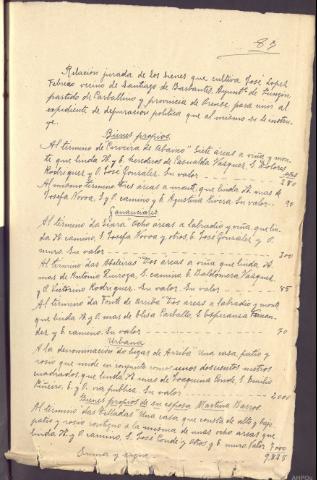 82
Relación jurada de los bienes que cultiva José López
Febrero vecino de Santiago de Barbantes, Ayuntº de Punxín,
partido de Carballino y provincia de Orense para unir al
expediente de depuración política que al mismo se le instru-
ye.
Bienes propios
Al término de "Corveira de Abaixo" Siete áreas a viña y mon-
te que linda N. y E. herederos de Casualda Vázquez, S. Dolores
Rodríguez y O. José González. Su valor 280
Al mismo término tres áreas a monte, que linda N. mas de
Josefa Novoa, S. y O. camino y E. Agustina Rivera. Su valor 30
Gananciales
Al término "da Eiara" Ocho áreas a labradío y viña, que lin-
da N. camino, S. Josefa Novoa y otros, E. José González y O.
muro. Su valor 200
Al término das Abeleiras "Dos áreas a viña que linda N.
mas de Antonio S. camino E. Baldomera Vázquez
y O. Victorino Rodríguez. Su valor. Su valor 45
Al término "da Fonte de Arriba" Dos áreas a labradío y monte
que linda N. y O. mas de Eliso Carballo, S. Esperanza Fernán-
dez y E. camino. Su valor 70
Urbana
A la denominación de lugar de "Arriba" Una casa, patio y
rocío que mide en conjunto como unos doscientos metros
cuadrados, que linda N. mas de Joaquina Conde, S. Emilio
Piñeiro, E. y O. vía pública. Su valor 2.000
Bienes propios de su esposa Martina Barros
Al término das "Telladas" Una casa que consta de alto y bajo,
patio y rocío contiguo a la misma de unas ocho áreas que
linda N. y O. camino, S. José Conde y otros y E. muro. Valor
Suma y sigue